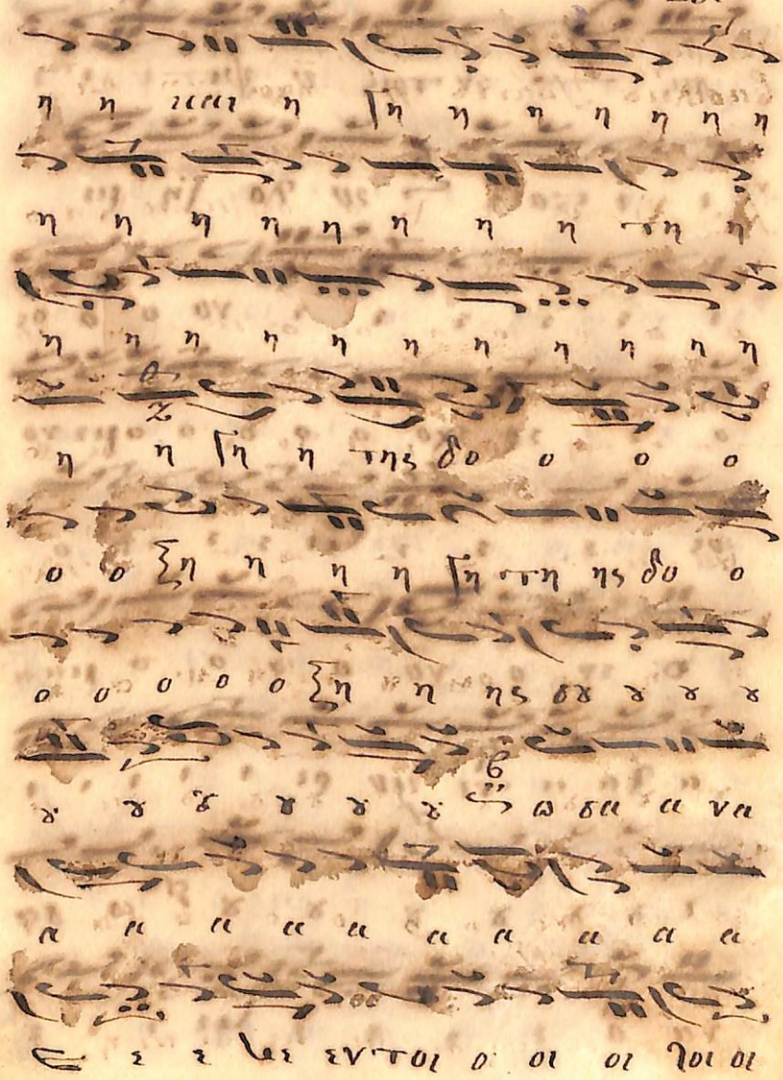 η η και η γη η η η η η η
η η η η η η η η τη η
η η η η η η η η η η
η η γη η της δο ο ο ο
ο ο ξη η η η γη τη ης δο ο
ο ο ο ο ο ξη η ης σȣ ȣ ȣ ȣ
ȣ ȣ ȣ ȣ ȣ ȣ ω σα α να
α α α α α α α α α α
ε ε ε ψε εν τοι ο οι οι λοι οι